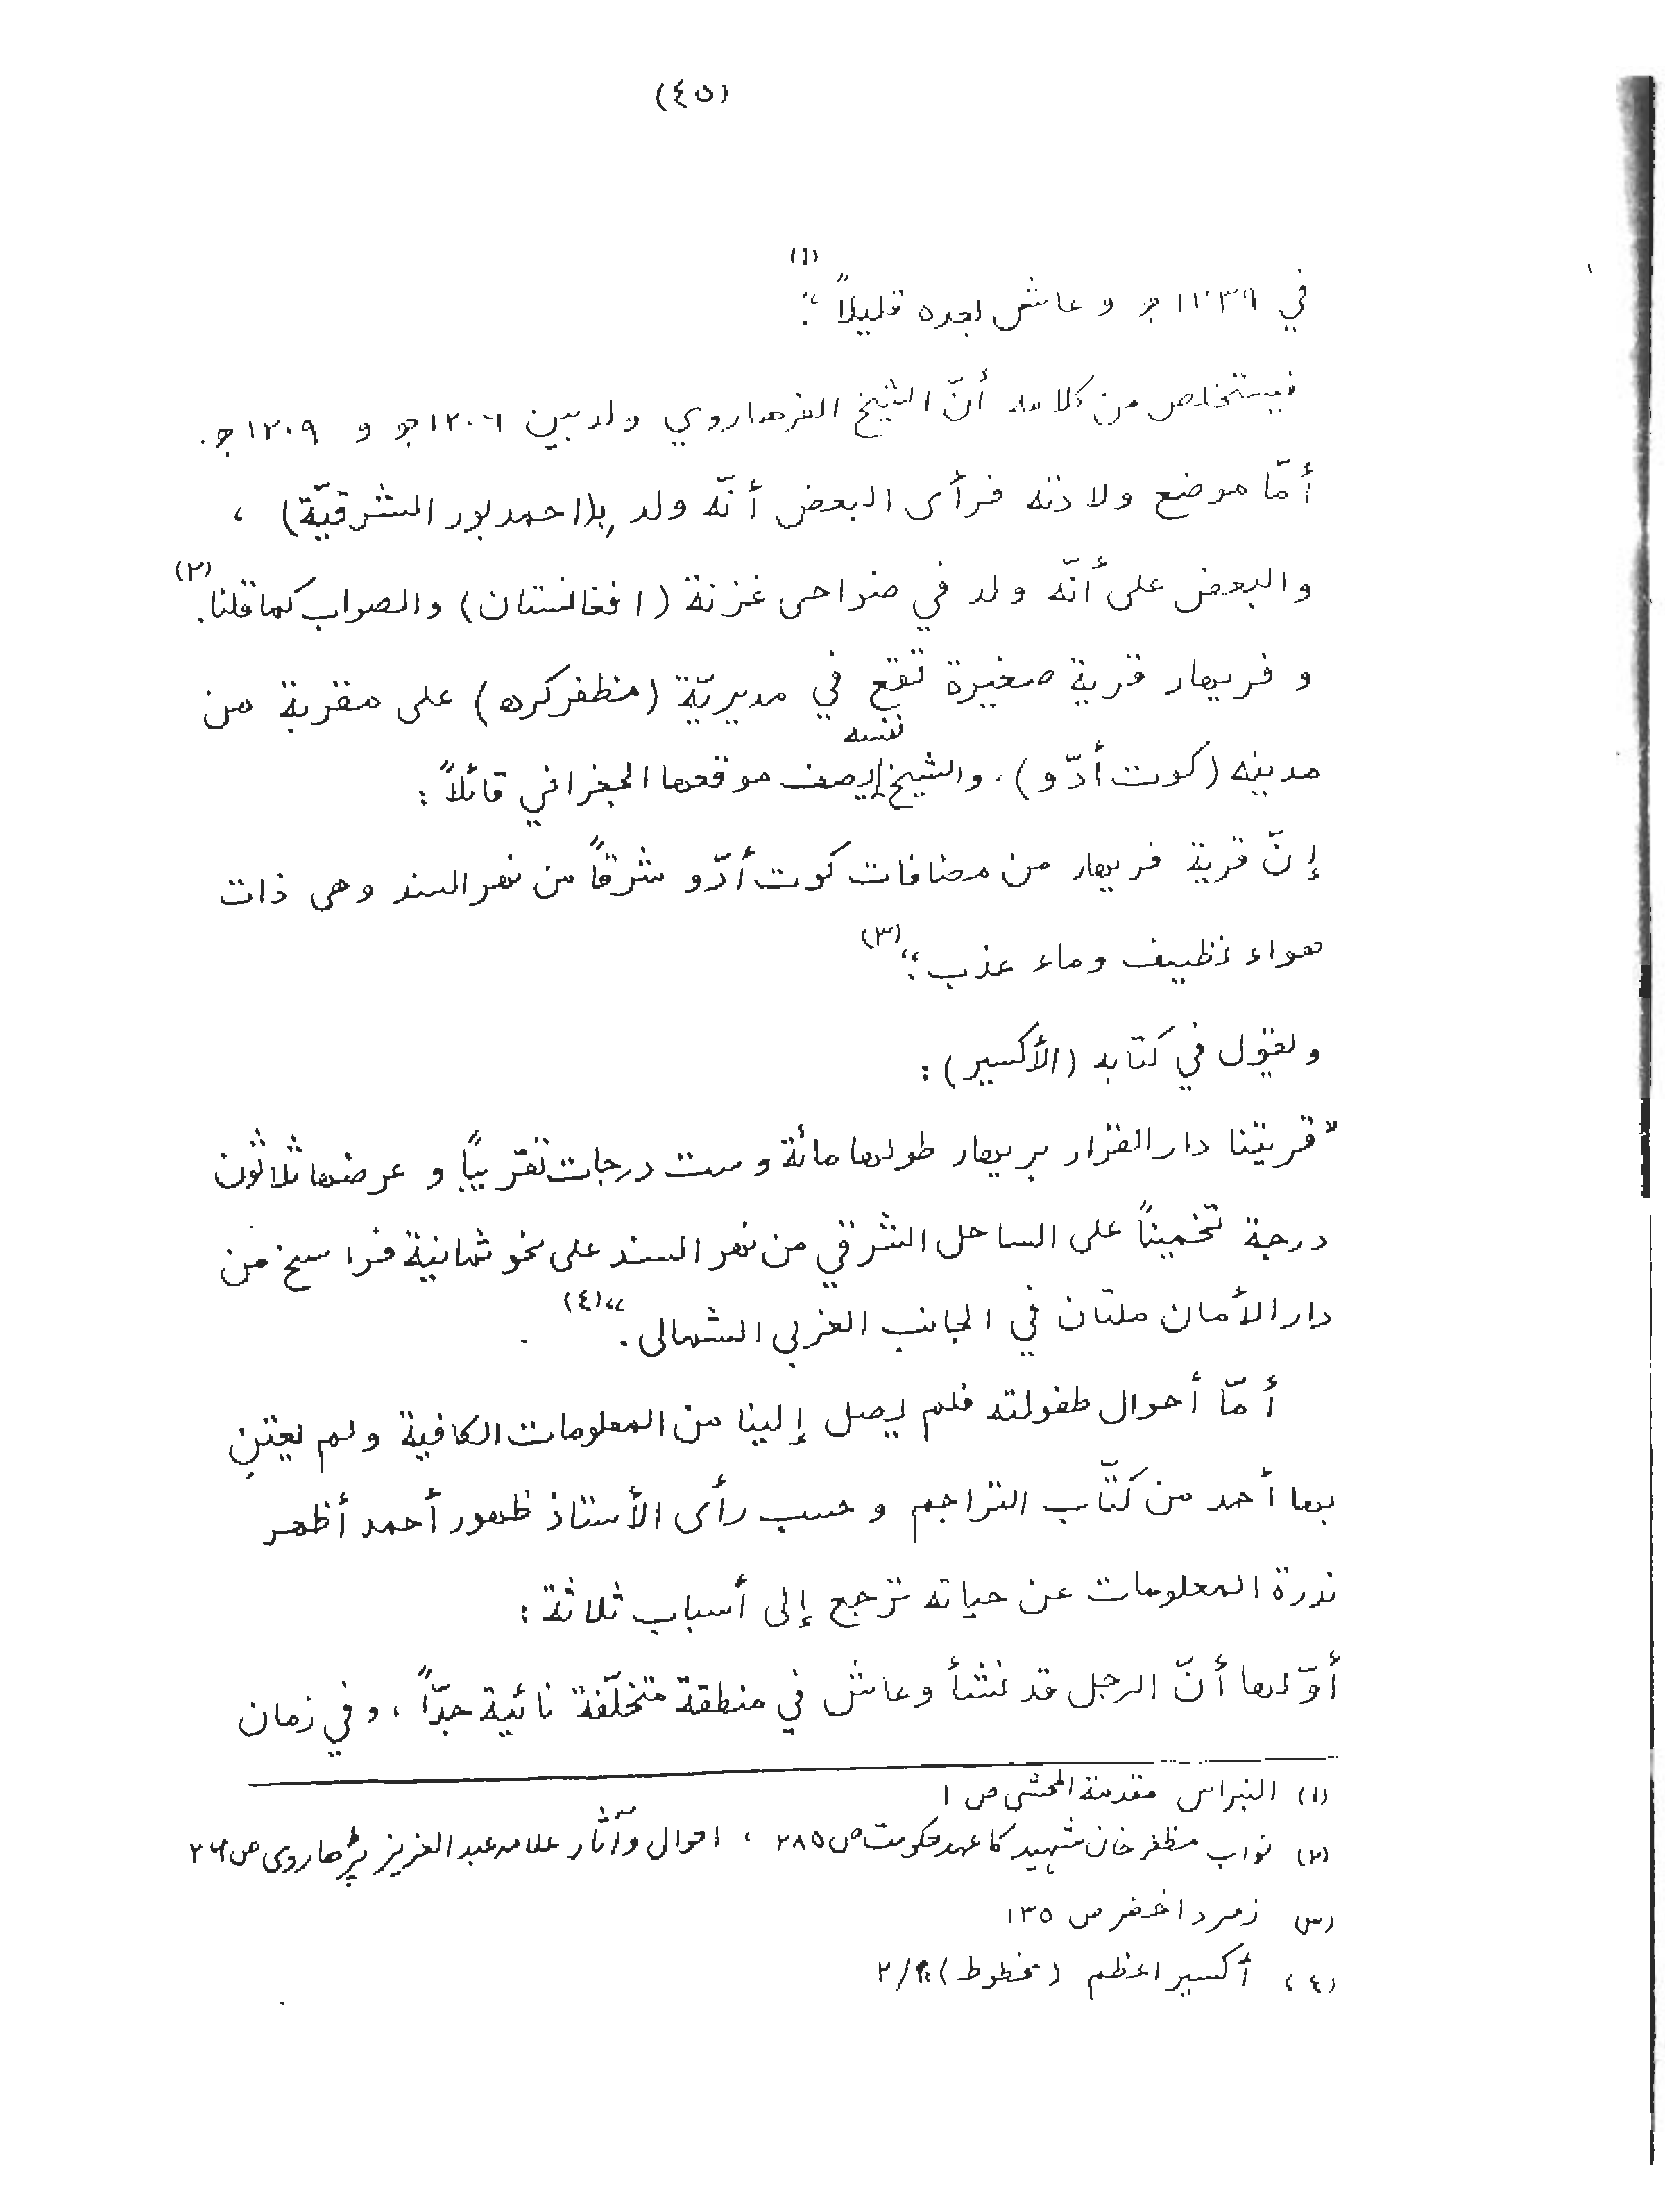 (٤٥)
في ١٢٣٩ هـ و عاش بعده قليلاً“. (١)
فيستخلص من كلامه أنّ الشيخ الفرهاروي ولد بين ١٢٠٦هـ و ١٢٠٩هـ.
أمّا موضع ولادته فرأى البعض أنّه ولد بـ(احمد بور الشرقيّة) ،
والبعض على أنّه ولد في ضواحى غزنة (افغانستان) والصواب كما قلنا. (٢)
و فريهار قرية صغيرة تقع في مديريّة (مظفر كره) على مقربة من
مدينه (كوت أدّو). والشيخ نفسه يصف موقعها الجغرافي قائلاً :
إنّ قرية فريهار من مضافات كوت أدّو شرقاً من نهر السند وهى ذات
هواء نظيف وماء عذب“. (٣)
ويقول في كتابه (الأكسير) :
”قريتنا دار القرار بريهار طولها مائة وست درجات تقريباً و عرضها ثلاثون
درجة تخميناً على الساحل الشرقي من نهر السند على نحو ثمانية فراسخ من
دار الأمان ملتان في الجانب الغربي الشمالى.“ (٤)
أمّا أحوال طفولته فلم يصل إلينا من المعلومات الكافية ولم يعتنِ
بها أحد من كتّاب التراجم و حسب رأى الأستاذ ظهور أحمد أظهر
ندرة المعلومات عن حياته ترجع إلى أسباب ثلاثة :
أوّلها أنّ الرجل قد نشأ وعاش في منطقة متخلّفة نائية جدّاً ، وفي زمان
(١) النبراس مقدمة المحشى ص ١
(٢) نواب مظفر خان شهيد كا عهد حكومت ص ٢٨٥ ، احوال وآثار علامه عبد العزيز پرهاروى ص ٢٦
(٣) زمرد اخضر ص ١٣٥
(٤) أكسير اعظم (مخطوط) ٢/